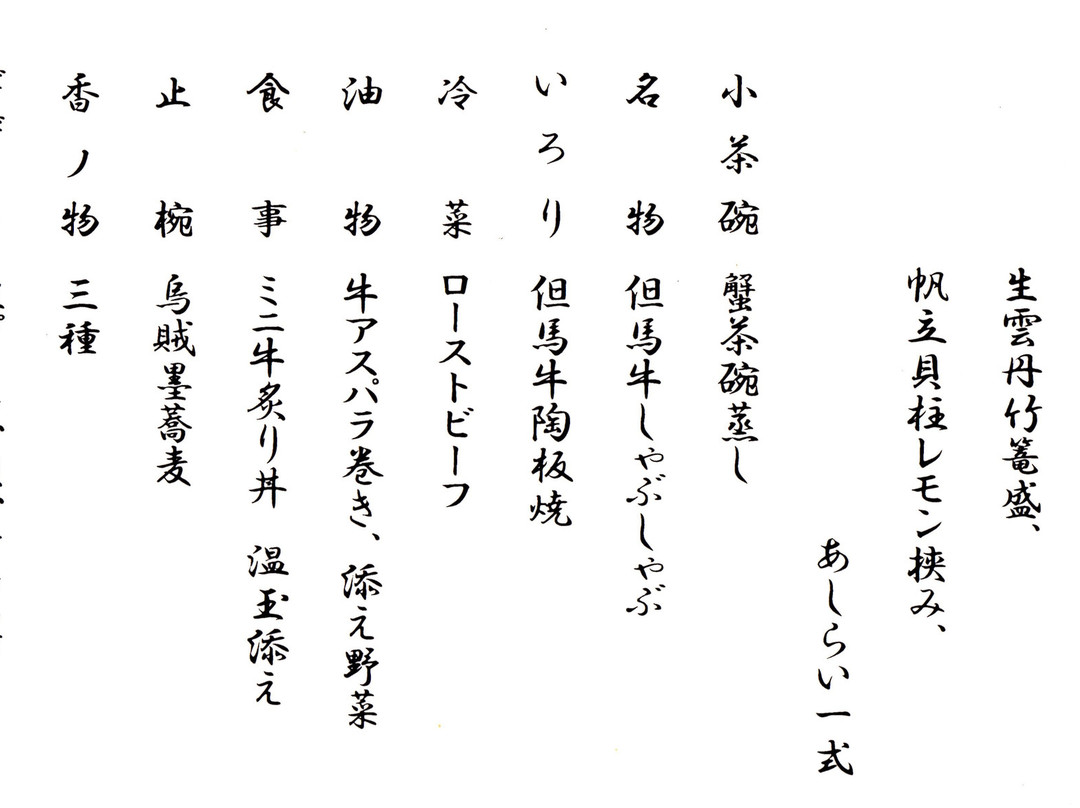 生雲丹竹篭盛、
帆立貝柱レモン挟み、
あしらい一式
小茶碗 蟹茶碗蒸し
名物 但馬牛しゃぶしゃぶ
いろり 但馬牛陶板焼
冷菜 ローストビーフ
油物 牛アスパラ巻き、添え野菜
食事 ミニ牛炙り丼 温玉添え
止椀 烏賊墨蕎麦
香ノ物 三種